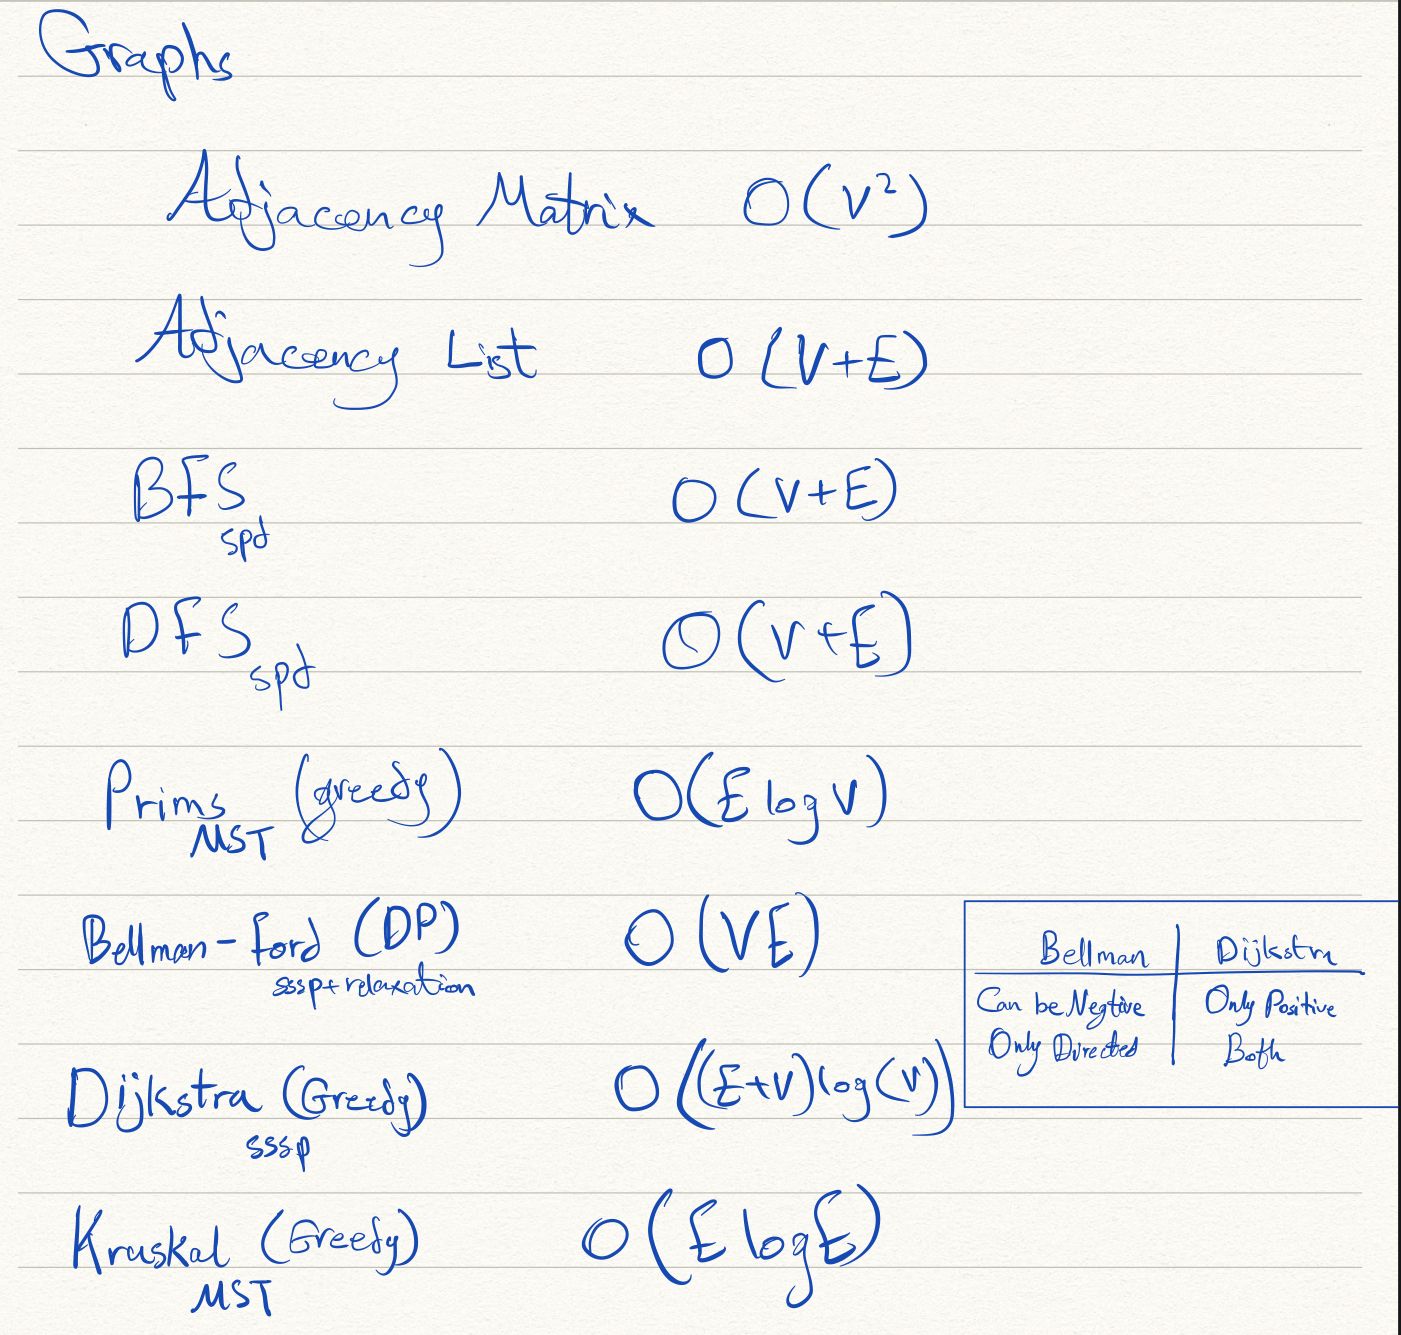 Graphs
Adjacency Matrix O(V²)
Adjacency List O(V+E)
BFS O(V+E)
spd
DFS O(V+E)
spd
Prims (greedy) O(E log V)
MST
Bellman-Ford (DP) O(VE)
sssp+relaxation
Bellman Dijkstra
Can be Negtive Only Positive
Only Directed Both
Dijkstra (Greedy) O((E+V)log(V))
sssp
Kruskal (Greedy) O(E logE)
MST